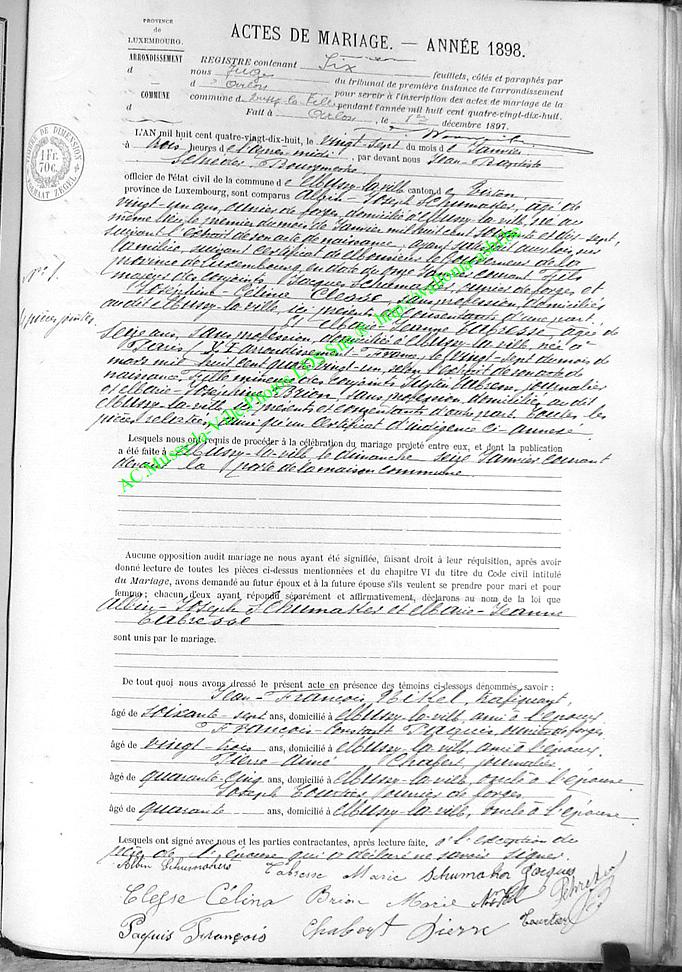 PROVINCE
de
LUXEMBOURG.
ARRONDISSEMENT
d
COMMUNE
d
ACTES DE MARIAGE. — ANNÉE 1898.
REGISTRE contenant Six feuillets, côtés et paraphés par
nous Juge du tribunal de première instance de l'arrondissement
d'Arlon pour servir à l'inscription des actes de mariage de la
commune de Mussy-la-Ville pendant l'année mil huit cent quatre-vingt-dix-huit.
Fait à Arlon, le 1er décembre 1897.
N° 1.
pièces jointes
L'AN mil huit cent quatre-vingt-dix-huit, le vingt-sept du mois de Janvier
à trois heures de l'après-midi, par devant nous Jean-Baptiste
Bourgmestre
officier de l'état civil de la commune de Mussy-la-Ville canton de Virton
province de Luxembourg, sont comparus Albin-Joseph Schumacker, âgé de
vingt-un ans, ouvrier de forges, domicilié à Mussy-la-Ville, né au
même lieu le premier du mois de Janvier mil huit cent soixante et dix-sept,
suivant l'extrait de son acte de naissance, ayant satisfait aux lois sur
la milice, suivant certificat de Monsieur le Gouverneur de la
province de Luxembourg, en date du onze Janvier courant, fils
majeur des conjoints Jacques Schumacker, ouvrier de forges et
Joséphine-Célina Clesse, sans profession, domiciliés
au dit Mussy-la-Ville, ici présents et consentants d'une part,
Et Marie-Jeanne Cabresse, âgée de
seize ans, sans profession, domiciliée à Mussy-la-Ville, née à
Paris VI arrondissement France, le vingt-sept du mois de
mars mil-huit cent quatre-vingt-un, selon l'extrait de son acte de
naissance, fille mineure des conjoints Cabresse, journalier
et Marie-Joséphine Brion, sans profession, domiciliés au dit
Mussy-la-Ville, ici présents et consentants d'autre part. Toutes les
pièces relatées, ainsi qu'un certificat d'indigence ci-annexé.
Lesquels nous ont requis de procéder à la célébration du mariage projeté entre eux, et dont la publication
a été faite à Mussy-la-Ville le dimanche seize Janvier courant
devant la porte de la maison commune.
Aucune opposition audit mariage ne nous ayant été signifiée, faisant droit à leur réquisition, après avoir
donné lecture de toutes les pièces ci-dessus mentionnées et du chapitre VI du titre du Code civil intitulé
du Mariage, avons demandé au futur époux et à la future épouse s'ils veulent se prendre pour mari et pour
femme ; chacun d'eux ayant répondu séparément et affirmativement, déclarons au nom de la loi que
Albin-Joseph Schumacker et Marie-Jeanne
Cabresse
sont unis par le mariage.
De tout quoi nous avons dressé le présent acte en présence des témoins ci-dessous dénommés, savoir :
Jean-François
âgé de soixante-sept ans, domicilié à Mussy-la-Ville, ami à l'époux
François-Constant Paquis, ouvrier de forges,
âgé de vingt-trois ans, domicilié à Mussy-la-Ville, ami à l'époux.
Pierre-Aimé Chabert, journalier
âgé de quarante-cinq ans, domicilié à Mussy-la-Ville, oncle à l'épouse
Joseph ouvrier de forges
âgé de quarante ans, domicilié à Mussy-la-Ville, oncle à l'épouse
Lesquels ont signé avec nous et les parties contractantes, après lecture faite, à l'exception du
père de l'épouse qui a déclaré ne savoir signer.
Albin Schumacker Cabresse Marie Schumaker Jacques
Clesse Célina Brion Marie
Paquis François Chabert Pierre
AC.Mussy-la-Ville-Photos LDS-Site @ http://wallonia-asbl.be